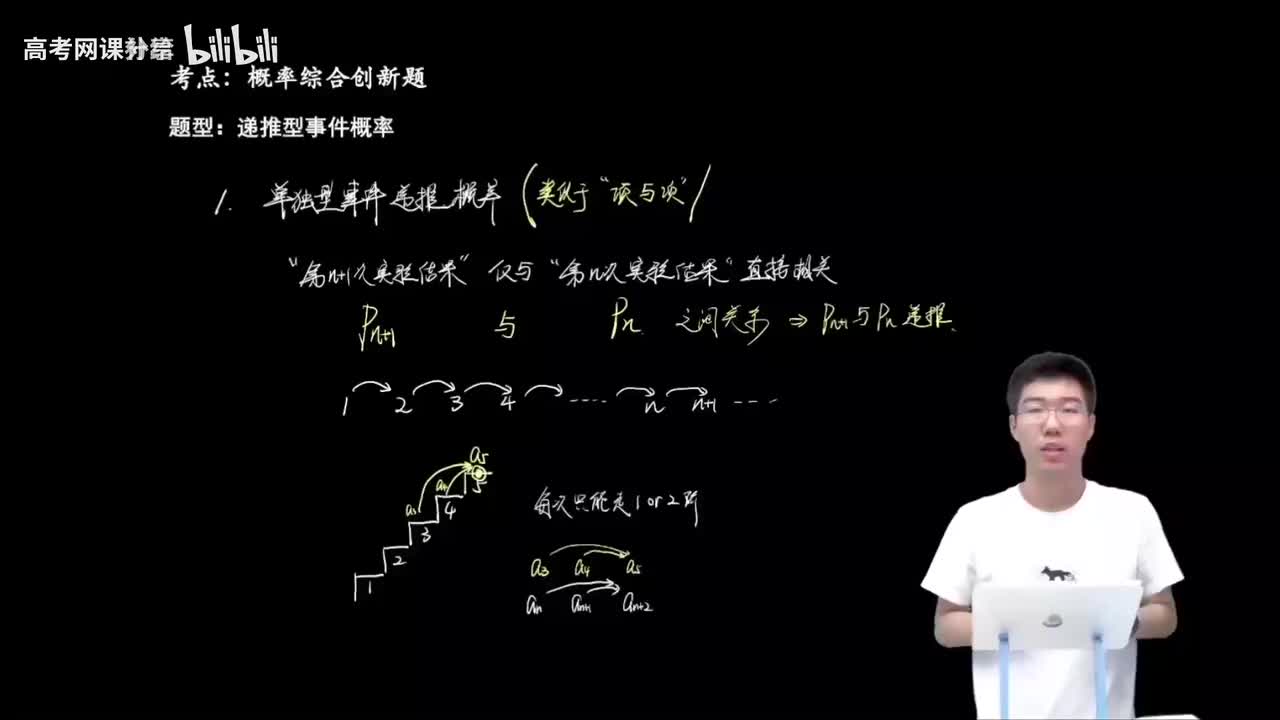 高考网课补给 bilibili
考点：概率综合创新题
题型：递推型事件概率
1. 单独型事件递推概率（类似于“项与项”）
“第n+1次实验结果” 仅与 “第n次实验结果” 直接相关
Pn+1 与 Pn 之间关系 ⇒ Pn+1与Pn递推.
1 2 3 4 ---- n n+1 ---
a5
a3 a4 5
4
3
2
1
每次只能走1 or 2阶
a3 a4 a5
an an+1 an+2